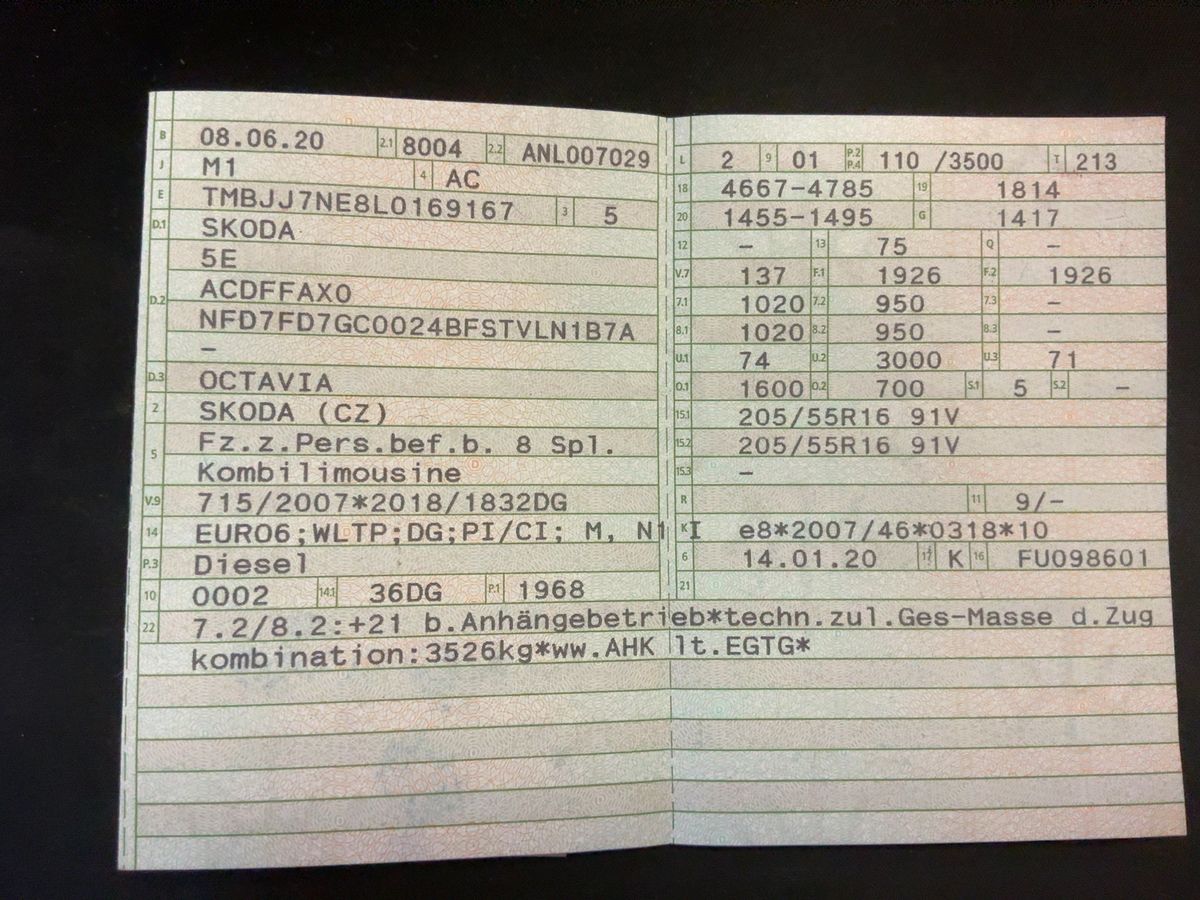 B 08.06.20 2.1 8004 2.2 ANL007029
J M1 4 AC
E TMBJJ7NE8L0169167 3 5
D.1 SKODA
5E
D.2 ACDFFAX0
NFD7FD7GC0024BFSTVLN1B7A
–
D.3 OCTAVIA
2 SKODA (CZ)
5 Fz.z.Pers.bef.b. 8 Spl.
Kombilimousine
V.9 715/2007*2018/1832DG
14 EURO6;WLTP;DG;PI/CI; M, N1 I
P.3 Diesel
10 0002 14.1 36DG P.1 1968
L 2 9 01 P.2 P.4 110 /3500 T 213
18 4667-4785 19 1814
20 1455-1495 G 1417
12 – 13 75 Q –
V.7 137 F.1 1926 F.2 1926
7.1 1020 7.2 950 7.3 –
8.1 1020 8.2 950 8.3 –
U.1 74 U.2 3000 U.3 71
O.1 1600 O.2 700 S.1 5 S.2 –
15.1 205/55R16 91V
15.2 205/55R16 91V
15.3 –
R 11 9/-
K e8*2007/46*0318*10
6 14.01.20 17 K 16 FU098601
21
22 7.2/8.2:+21 b.Anhängebetrieb*techn.zul.Ges-Masse d.Zug
kombination:3526kg*ww.AHK lt.EGTG*